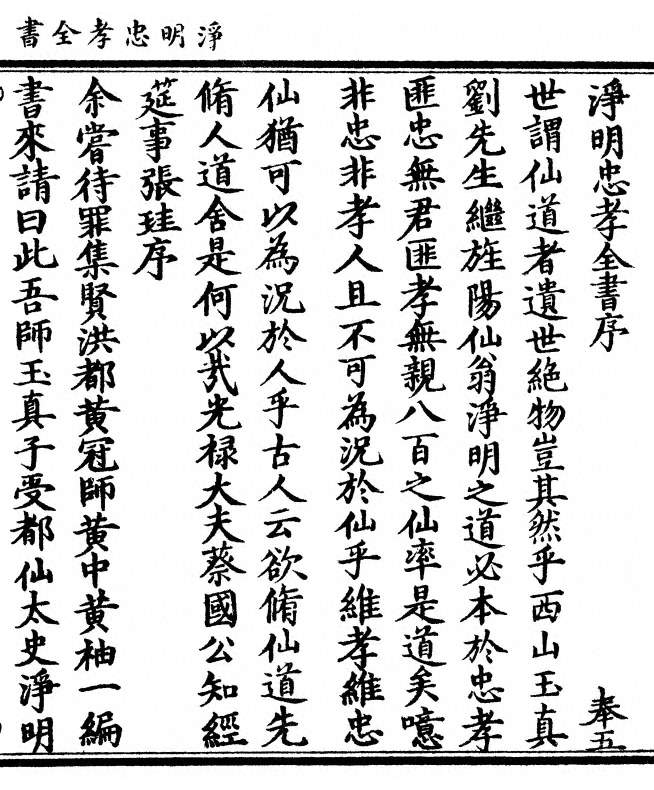 淨明忠孝全書
淨明忠孝全書序
奉五
世謂仙道者遺世絶物豈其然乎西山玉真
劉先生繼旌陽仙翁淨明之道必本於忠孝
匪忠無君匪孝無親八百之仙率是道矣噫
非忠非孝人且不可為況於仙乎維孝維忠
仙猶可以為況於人乎古人云欲脩仙道先
脩人道舍是何以㢤光禄大夫蔡國公知經
筵事張珪序
余嘗待罪集賢洪都黄冠師黄中黄袖一編
書來請曰此吾師玉真子受都仙太史淨明